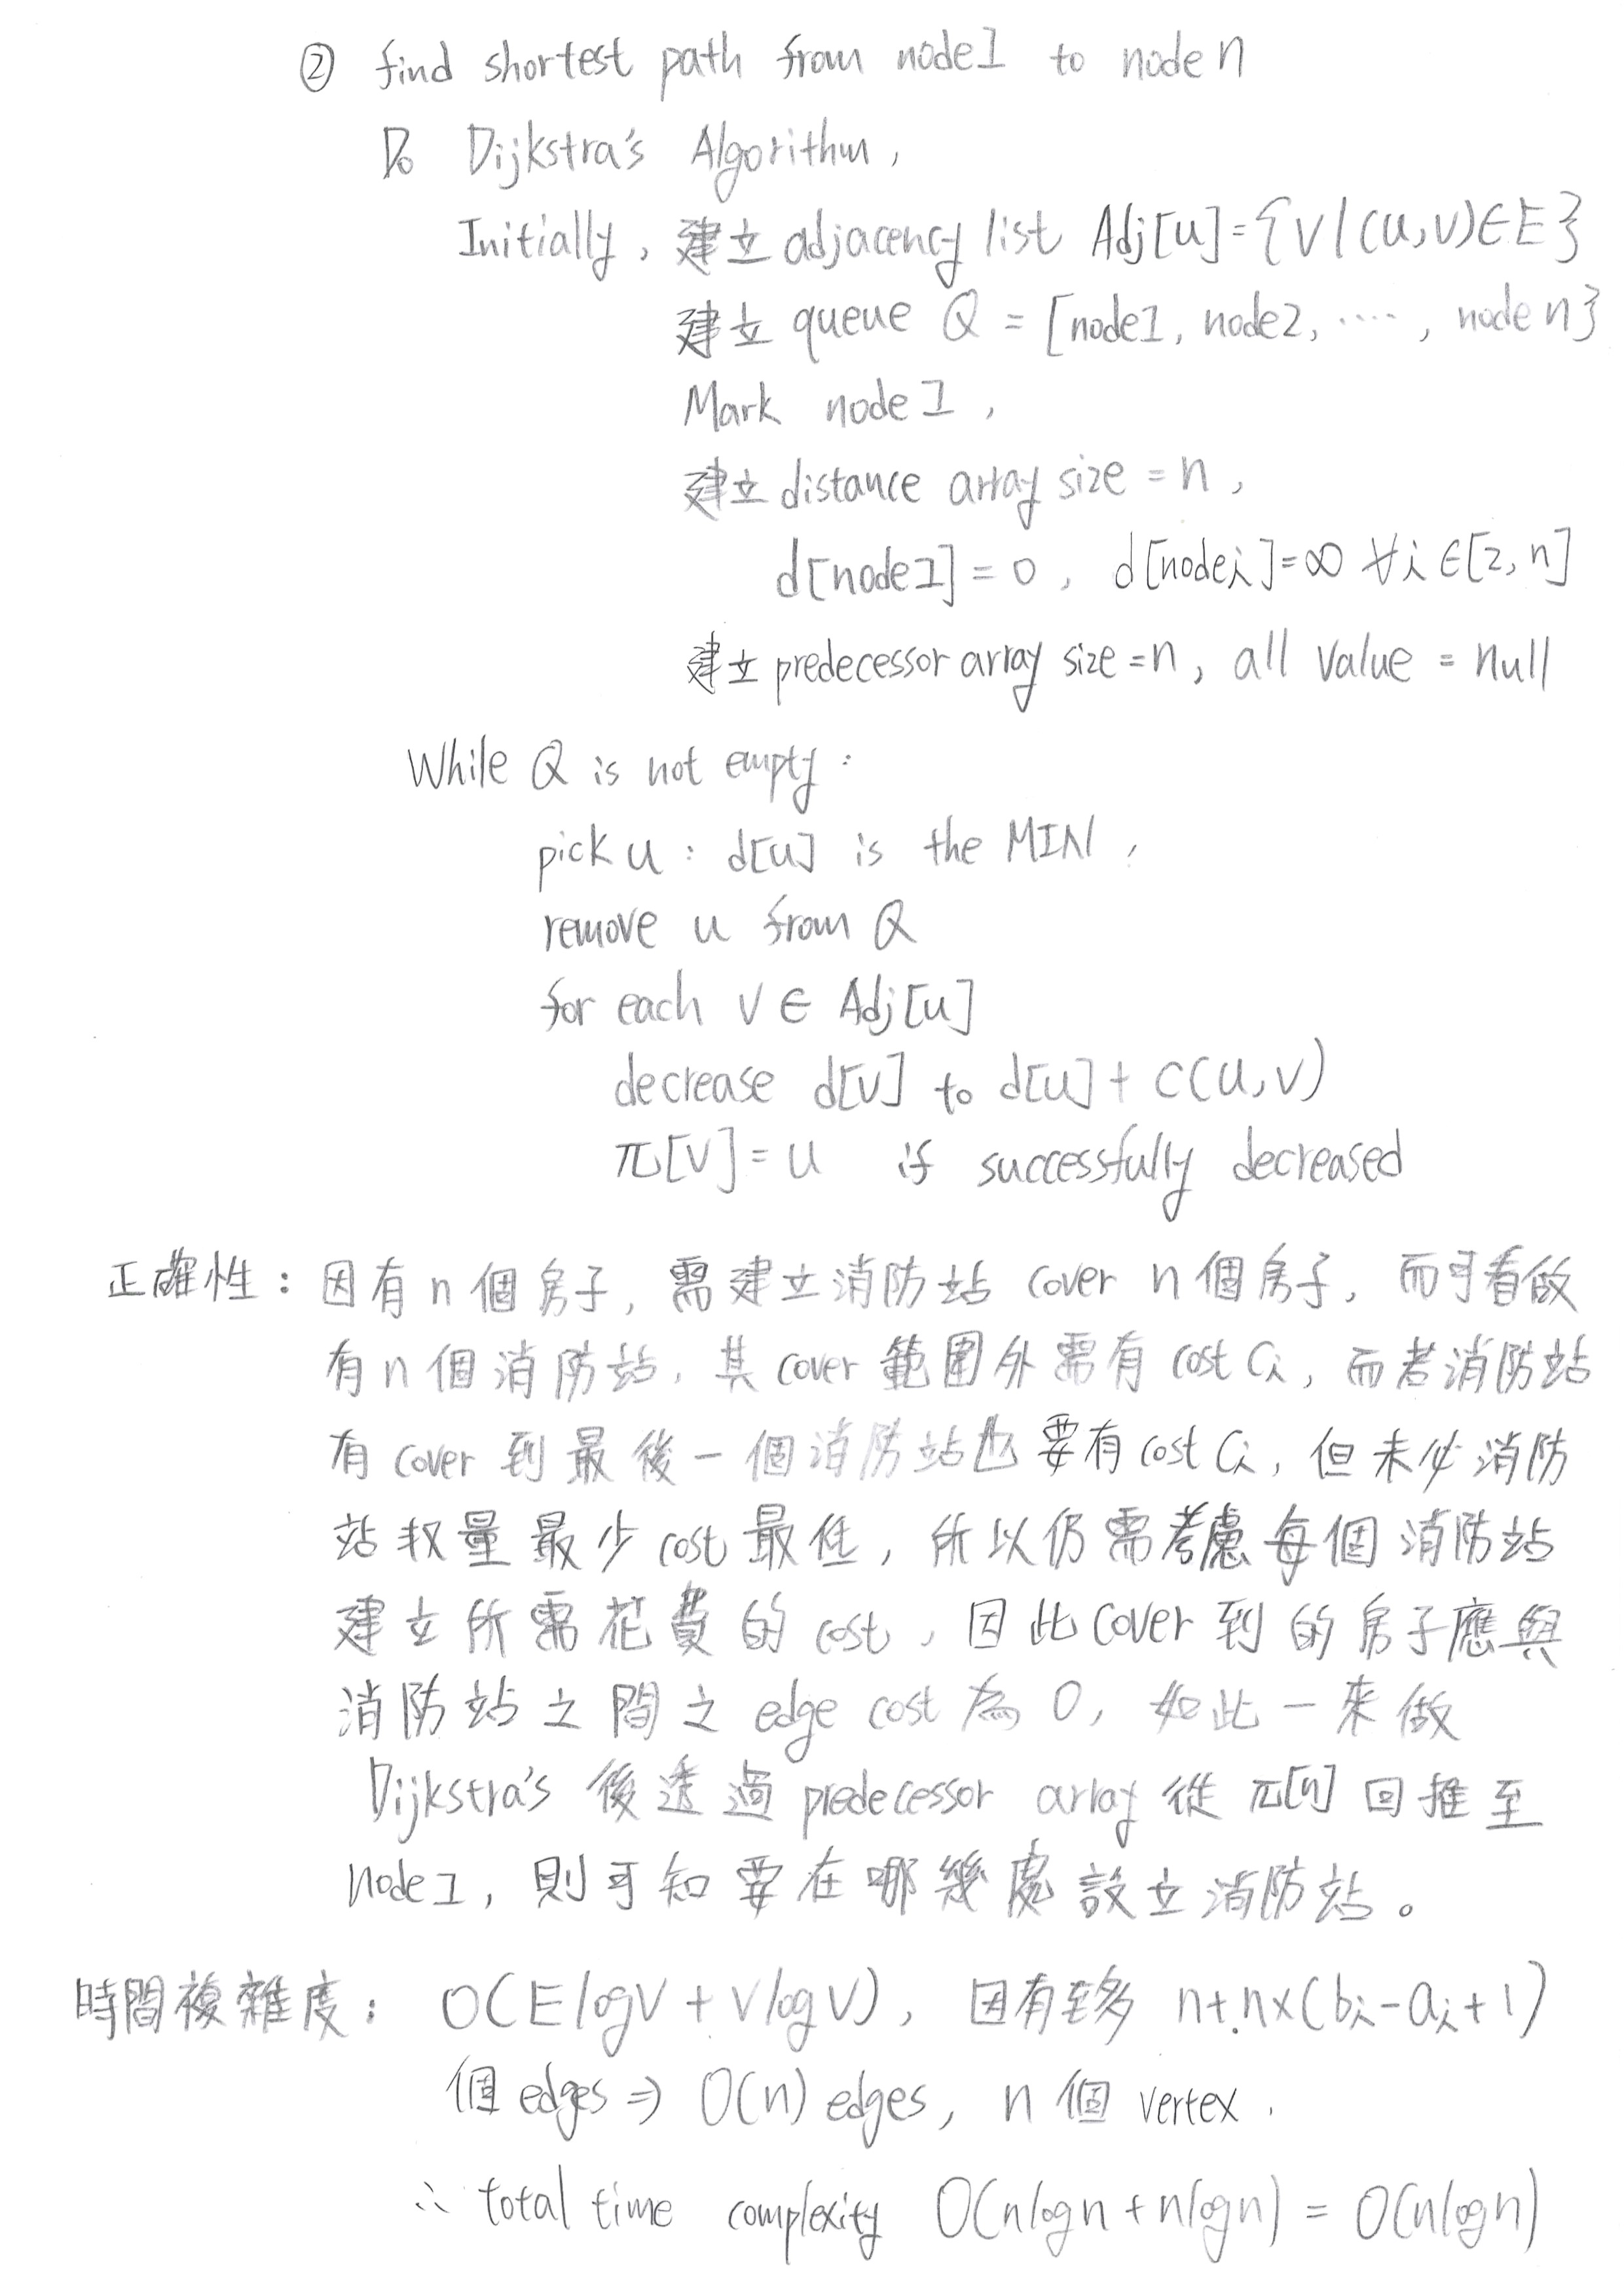 ② find shortest path from node1 to node n
Do Dijkstra's Algorithm,
Initially, 建立 adjacency list Adj[u]={v|(u,v)∈E}
建立 queue Q = [node1, node2, ····, node n}
Mark node1,
建立 distance array size = n,
d[node1] = 0, d[nodei]=∞ ∀i∈[2,n]
建立 predecessor array size=n, all value = null
While Q is not empty:
pick u : d[u] is the MIN,
remove u from Q
for each v ∈ Adj[u]
decrease d[v] to d[u] + c(u,v)
π[v] = u if successfully decreased
正確性: 因有 n 個房子, 需建立消防站 cover n 個房子, 而可看做
有 n 個消防站, 其 cover 範圍外需有 cost Ci, 而若消防站
有 cover 到最後一個消防站也要有 cost Ci, 但未必消防
站权量最少 cost 最低, 所以仍需考慮每個消防站
建立所需花費的 cost, 因此 cover 到的房子應與
消防站之間之 edge cost 為 0, 如此一來做
Dijkstra's 後透過 predecessor array 從 π[n] 回推至
node1, 則可知要在哪幾處設立消防站。
時間複雜度: O(ElogV + VlogV), 因有至多 n+n×(bi-ai+1)
個 edges ⇒ O(n) edges, n 個 vertex.
∴ total time complexity O(nlogn + nlogn) = O(nlogn)